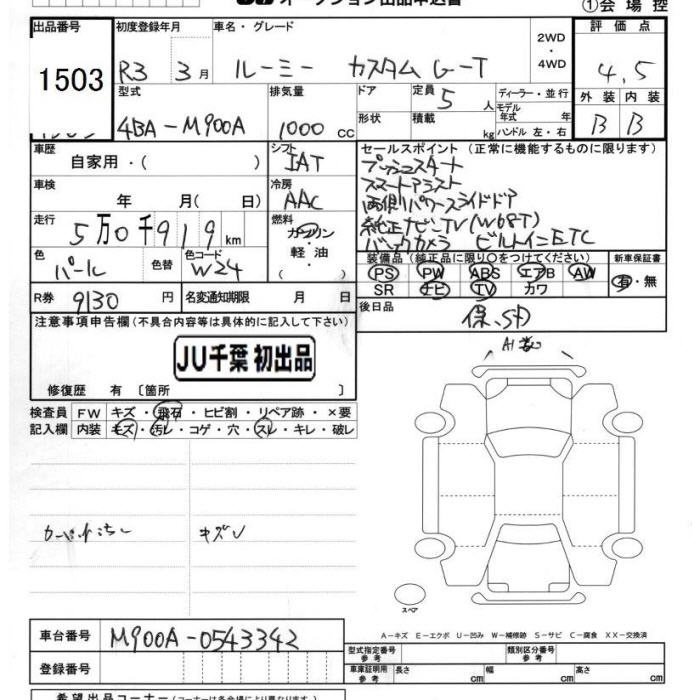 オークション出品申込書
①会場控
出品番号 初度登録年月 車名・グレード 2WD・4WD 評価点
1503 R3 3月 ルーミー カスタム G-T 4.5
型式 排気量 ドア 定員 5 人 ディーラー・並行 外装 内装
4BA-M900A 1000 cc 形状 積載 kg モデル年式 年 ハンドル 左・右 B B
車歴 自家用・( ) シフト IAT セールスポイント (正常に機能するものに限ります)
プッシュスタート
車検 年 月( 日) 冷房 AAC スマートアシスト
両側パワースライドドア
走行 5万0千919km 燃料 ガソリン・軽油・ 純正ナビTV(W68T)
バックカメラ ビルトインETC
色 パール 色替 色コード W24
装備品 (純正品に限り○をつけてください) 新車保証書
PS PW ABS エアB AW 有・無
SR ナビ TV カワ
R券 9130円 名変通知期限 月 日
後日品 保、SP
注意事項申告欄(不具合内容等は具体的に記入して下さい)
JU千葉 初出品
修復歴 有 〔箇所 〕
検査員 FW キズ・飛石・ヒビ割・リペア跡・×要
記入欄 内装 キズ・汚レ・コゲ・穴・スレ・キレ・破レ
キズレ
スペア
A-キズ E-エクボ U-凹み W-補修跡 S-サビ C-腐食 XX-交換済
車台番号 M900A-0543342
型式指定番号 参考 類別区分番号 参考
登録番号
車庫証明用 参考 長さ cm 幅 cm 高さ cm
希望出品コーナー(コーナーは各会場により異なります。)